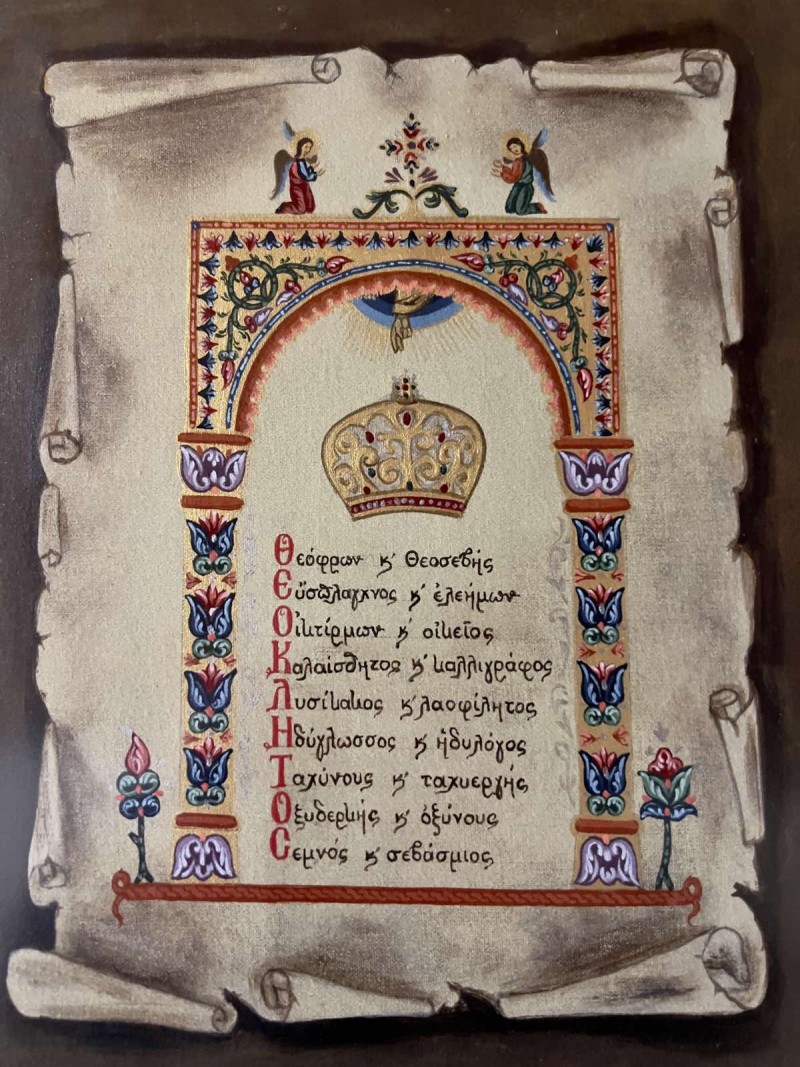 Θεόφρων κ' Θεοσεβής
Εὔσπλαγχνος κ' ἐλεήμων
Οἰκτίρμων κ' οἰκεῖος
Καλαίσθητος κ' καλλιγράφος
Λυσίκακος κ' λαοφίλητος
Ἡδύγλωσσος κ' ἡδυλόγος
Ταχύνους κ' ταχυεργής
Ὀξυδερκής κ' ὀξύνους
Σεμνός κ' σεβάσμιος